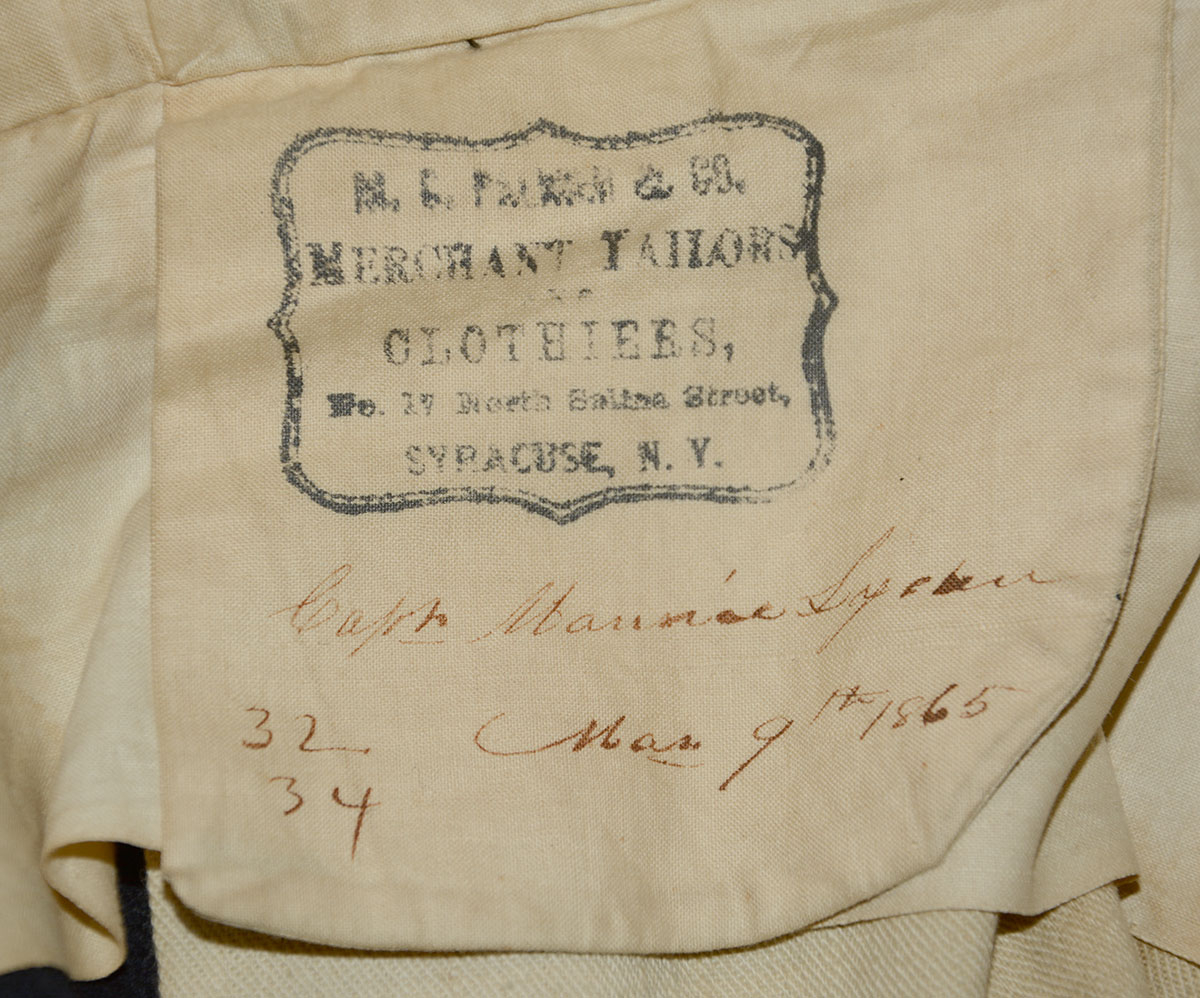 & CO.
MERCHANT TAILORS
AND
CLOTHIERS,
No. 17 North Salina Street,
SYRACUSE, N. Y.
Capt Maurice
32 Mar 9th 1865
34